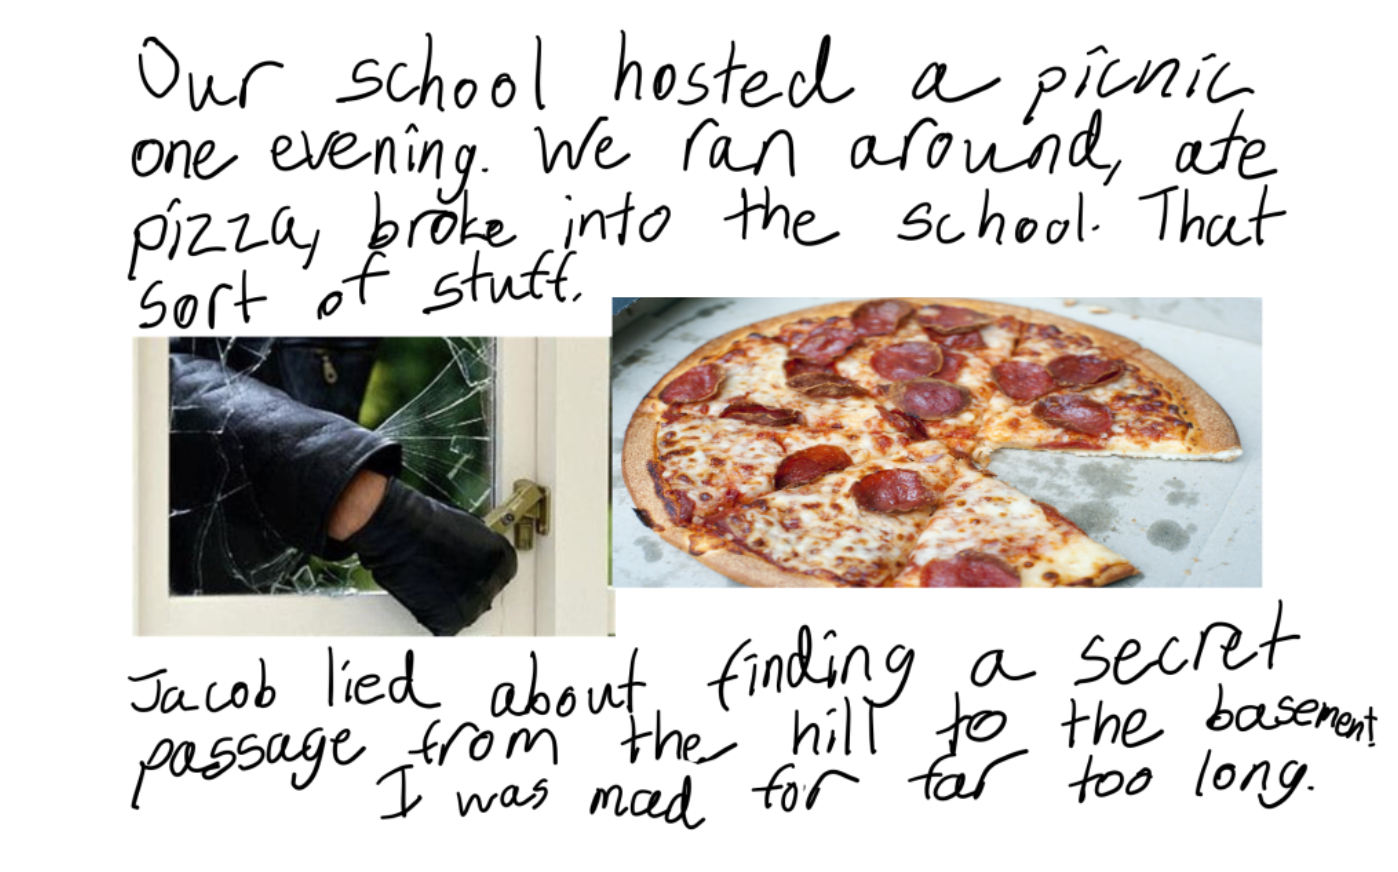 Our school hosted a picnic
one evening. We ran around, ate
pizza, broke into the school. That
sort of stuff.
Jacob lied about finding a secret
passage from the hill to the basement
I was mad for far too long.